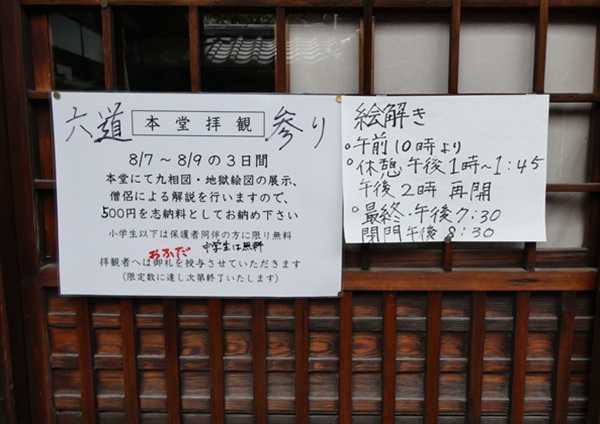 六道 本堂拝観 参り
8/7 ～ 8/9 の 3 日間
本堂にて九相図・地獄絵図の展示、
僧侶による解説を行いますので、
500円を志納料としてお納め下さい
小学生以下は保護者同伴の方に限り無料
中学生は無料
おふだ
拝観者へは御札を授与させていただきます
(限定数に達し次第終了いたします)
絵解き
・午前10時より
・休憩 午後1時~1:45
午後2時 再開
・最終・午後7:30
閉門午後8:30